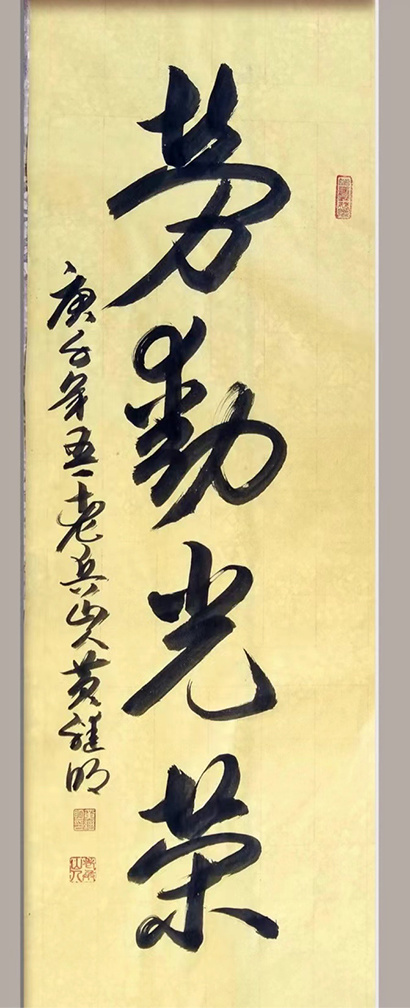 劳動光荣
庚子年五一老兵山人黄继明